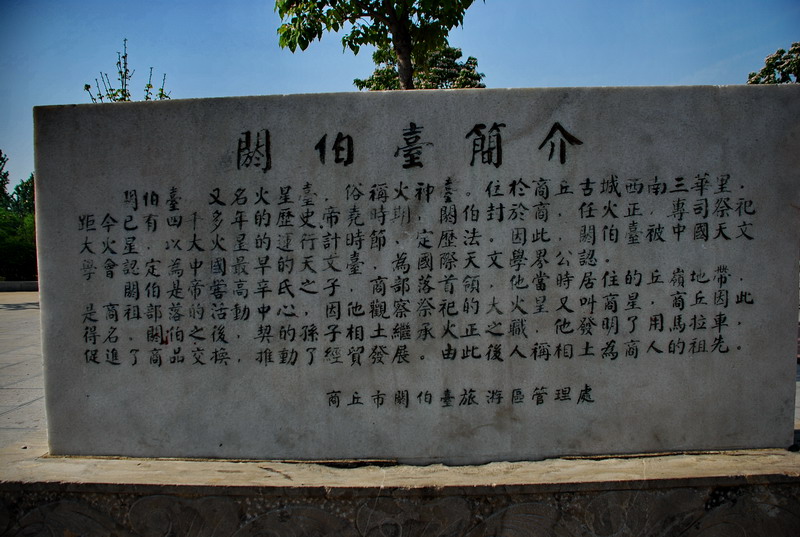 閼伯臺簡介
閼伯臺又名火星臺.俗稱火神臺。位於商丘古城西南三華里.
距今已有四千多年的歷史.帝堯時期,閼伯封於商任火正.專司祭祀
大火星.以大火星的運行計時節,定歷法.因此閼伯臺被中國天文
學會認定為中國最早的天文臺,為國際天文學界公認.
閼伯是帝嚳高辛氏之子,商部落首領.他當時居住的丘嶺地帶.
是商部落的活動中心.因觀察祭祀大火星又叫商星,商丘因此
得名.閼伯之後契的孫子相土繼承火正之職.他發明了用馬拉車.
促進了商品交換,推動了經貿發展。由此後人稱相土為商人的祖先.
商丘市閼伯臺旅游區管理處